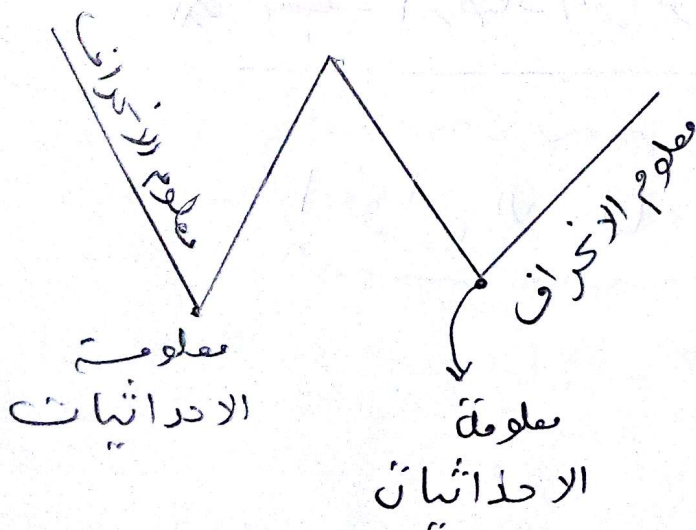 معلوم الانحراف
معلوم الانحراف
معلومة
الاحداثيات
معلومة
الاحداثيات